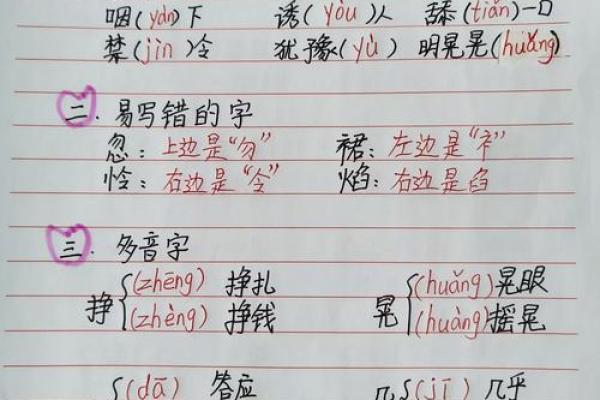 咽(yàn)下 诱(yòu)人 舔(tiǎn)一口
禁(jìn)令 犹豫(yù) 明晃晃(huǎng)
二.易写错的字
忽：上边是“勿” 裙：左边是“衤”
怜：右边是“令” 焰：右边是臽
三.多音字
挣{(zhēng) 挣扎 晃{(huǎng)晃眼
(zhèng) 挣钱 (huàng)摇晃
(dā) 答应 几 (jī) 几乎